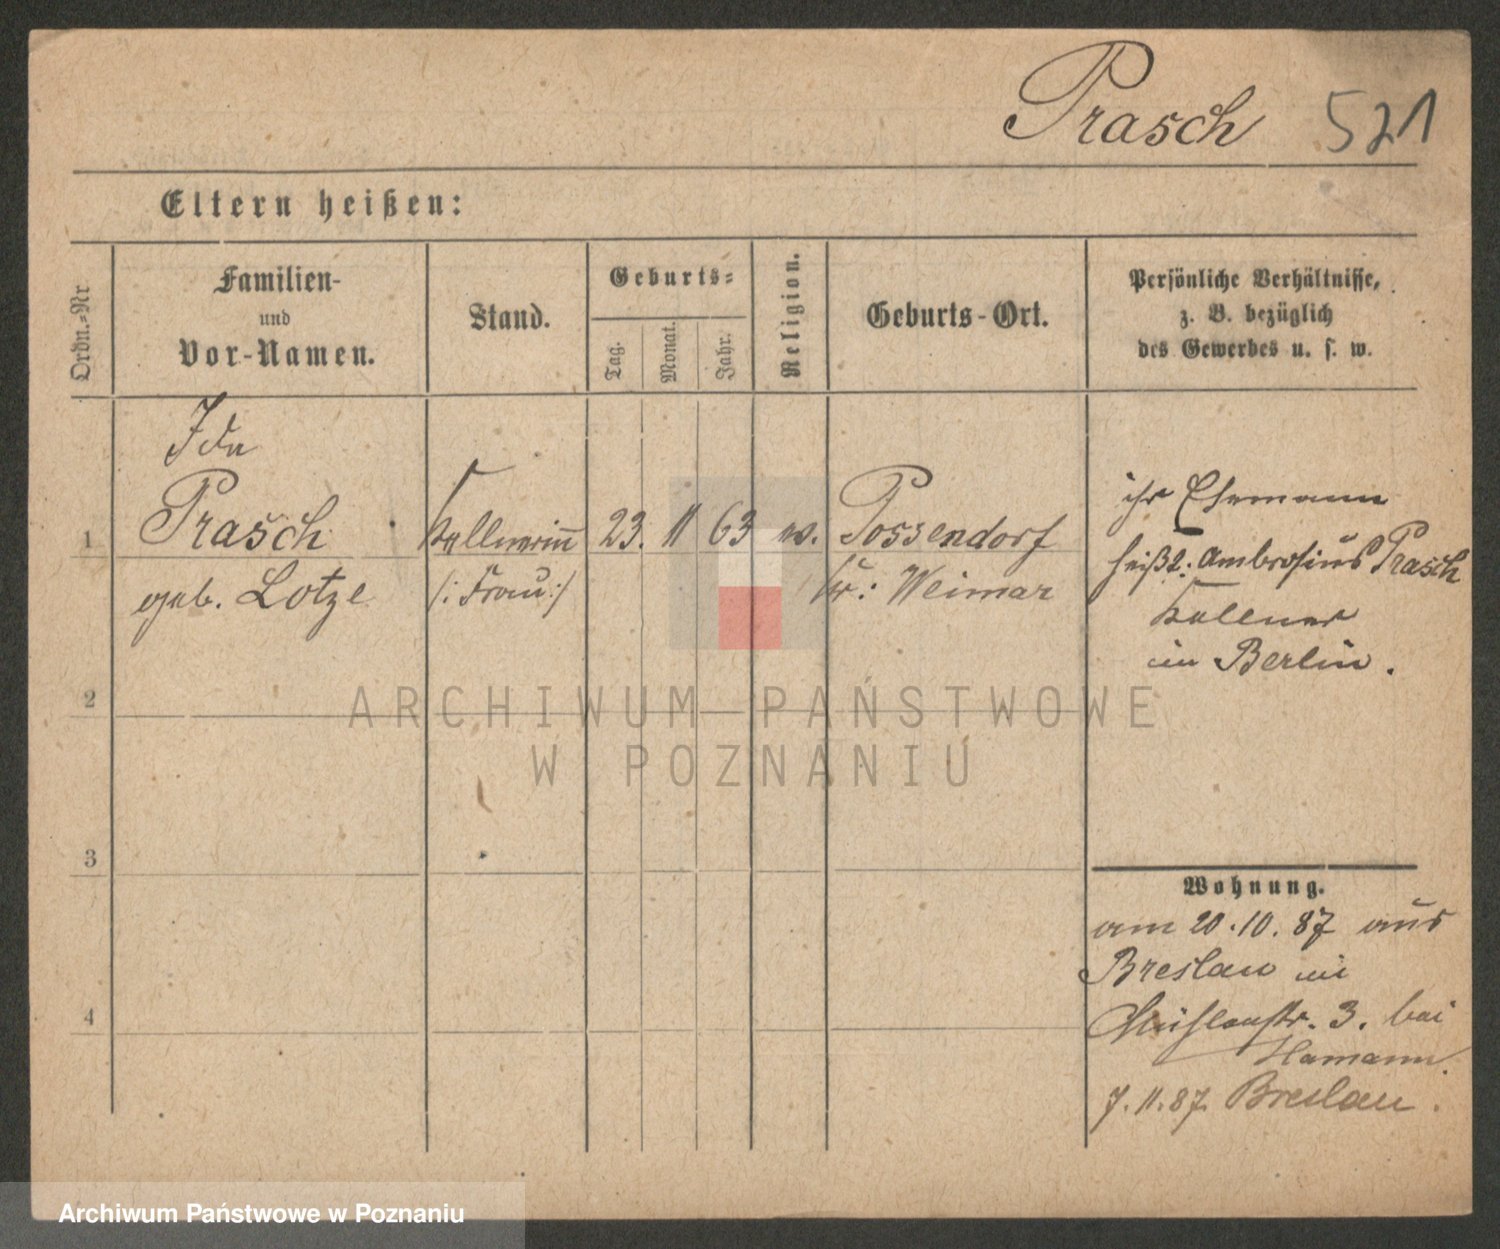 Prasch 521
Eltern heißen:
Ordn.=Nr
Familien-
und
Vor-Namen.
Stand.
Geburts=
Tag.
Monat.
Jahr.
Religion.
Geburts-Ort.
Persönliche Verhältnisse,
z. B. bezüglich
des Gewerbes u. s. w.
Ida
1 Prasch Kellnerin 23. 11 63 ev. Possendorf
geb. Lotze /: Frau :/ Kr: Weimar
ihr Ehemann
heißt: Ambrosius Prasch
Kellner
in Berlin.
2
3
4
Wohnung.
am 20.10.87 aus
Breslau
Mühlenstr. 3. bei
Hamann.
7.11.87. Breslau.
ARCHIWUM PAŃSTWOWE
W POZNANIU
Archiwum Państwowe w Poznaniu